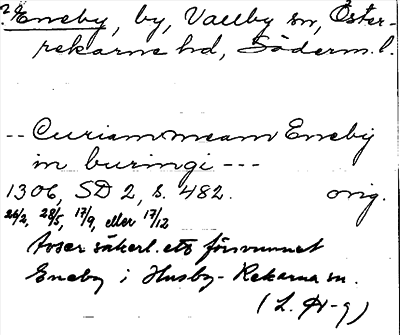 ? Eneby, by, Vallby sn, Öster-
rekarne hd, Söderm. l.
-- Curiam meam Eneby
in buringi ---
1306, SD 2, s. 482. orig.
26/2, 28/5, 17/9, eller 17/12
Avser säkerl. ett försvunnet
Eneby i Husby-Rekarne sn.
(L. H-g)